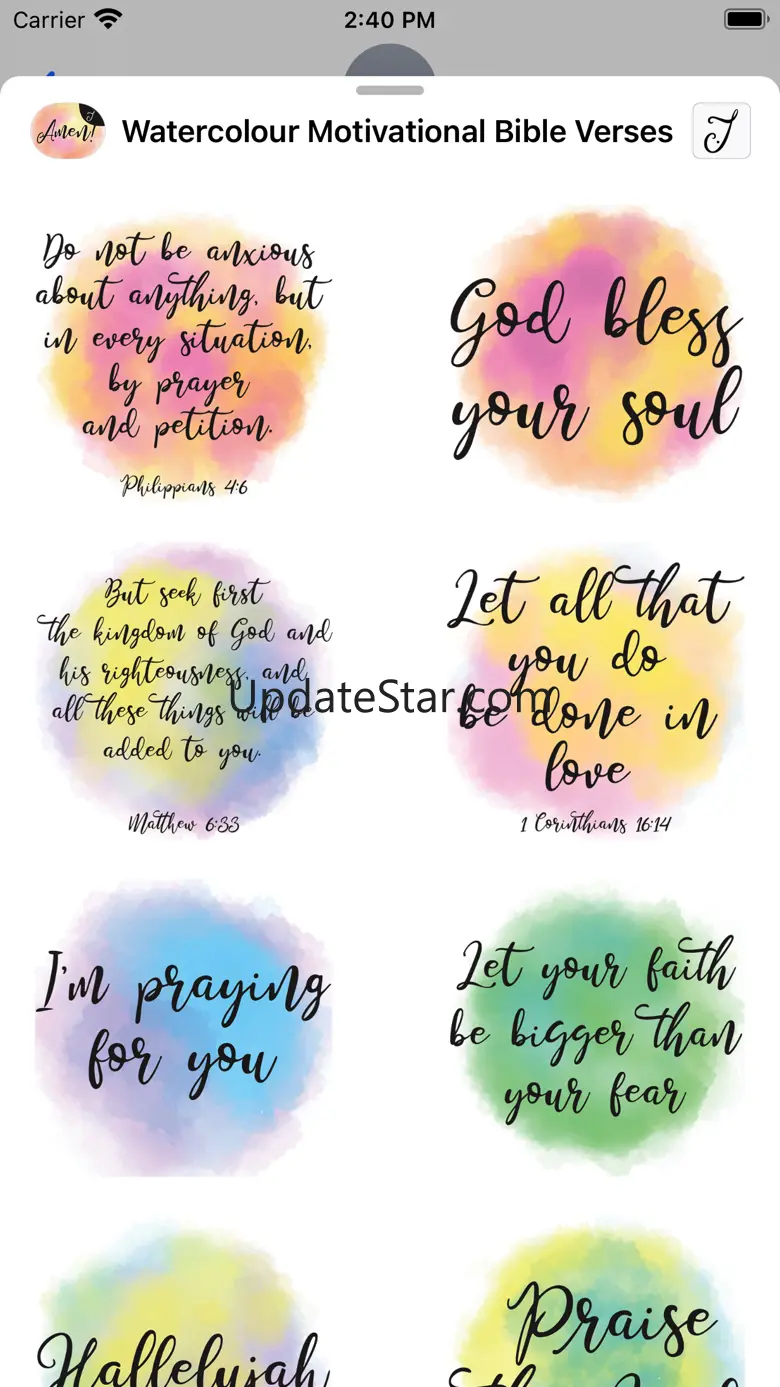 Carrier
2:40 PM
Amen!
J
Watercolour Motivational Bible Verses
J
Do not be anxious
about anything, but
in every situation,
by prayer
and petition.
Philippians 4:6
God bless
your soul
But seek first
the kingdom of God and
his righteousness, and
all these things will be
added to you.
Matthew 6:33
Let all that
you do
be done in
love
1 Corinthians 16:14
UpdateStar.com
I'm praying
for you
Let your faith
be bigger than
your fear
Hallelujah
Praise